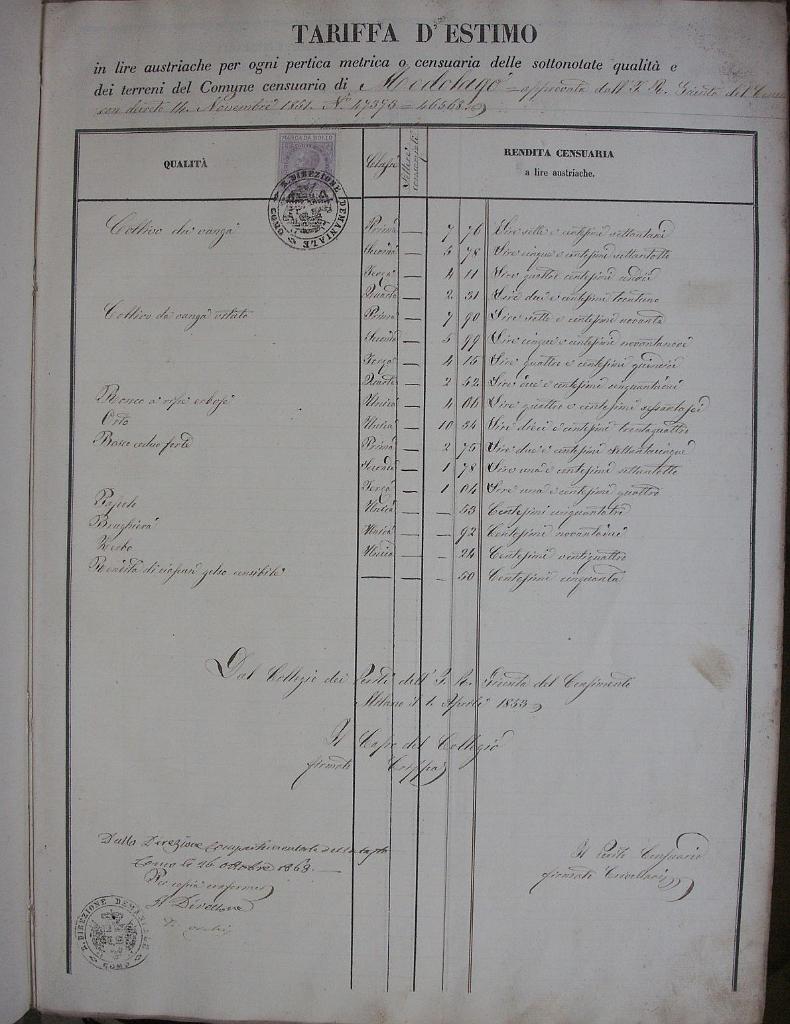 TARIFFA D'ESTIMO
in lire austriache per ogni pertica metrica o censuaria delle sottonotate qualità e
dei terreni del Comune censuario di Medolago approvata dall'I. R. Giunta del
con decreto 14 Novembre 1851. N.° 47395 = 46568.
QUALITÀ
MARCA DA BOLLO
Classi
RENDITA CENSUARIA
a lire austriache.
R. DIREZIONE DEMANIALE COMO
Coltivo da vanga Prima — 7 76 Lire sette e centesimi settantasei
Seconda — 5 78 Lire cinque e centesimi settantotto
Terza — 4 11 Lire quattro e centesimi undici
Quarta — 2 31 Lire due e centesimi trentuno
Coltivo da vanga vitato Prima — 7 90 Lire sette e centesimi novanta
Seconda — 5 99 Lire cinque e centesimi novantanove
Terza — 4 15 Lire quattro e centesimi quindici
Quarta — 2 52 Lire due e centesimi cinquantadue
Ronco a ripe erbose Unica — 4 66 Lire quattro e centesimi sessantasei
Orto Unica — 10 34 Lire dieci e centesimi trentaquattro
Bosco ceduo forte Prima — 2 75 Lire due e centesimi settantacinque
Seconda — 1 78 Lire una e centesimi settantotto
Terza — 1 04 Lire una e centesimi quattro
Pascolo Unica — — 53 Centesimi cinquantatre
Brughiera Unica — — 92 Centesimi novantadue
Zerbo Unica — — 24 Centesimi ventiquattro
Rendita di ciascun gelso censibile — — — 50 Centesimi cinquanta
Dal Collegio dei Periti dell'I. R. Giunta del Censimento
Milano il 1. Aprile 1853
Il Capo del Collegio
firmato Crippa
Dalla Direzione compartimentale del
Como le 26 ottobre 1863.
Per copia conforme
Il Direttore
Il Perito Censuario
firmato
R. DIREZIONE DEMANIALE COMO